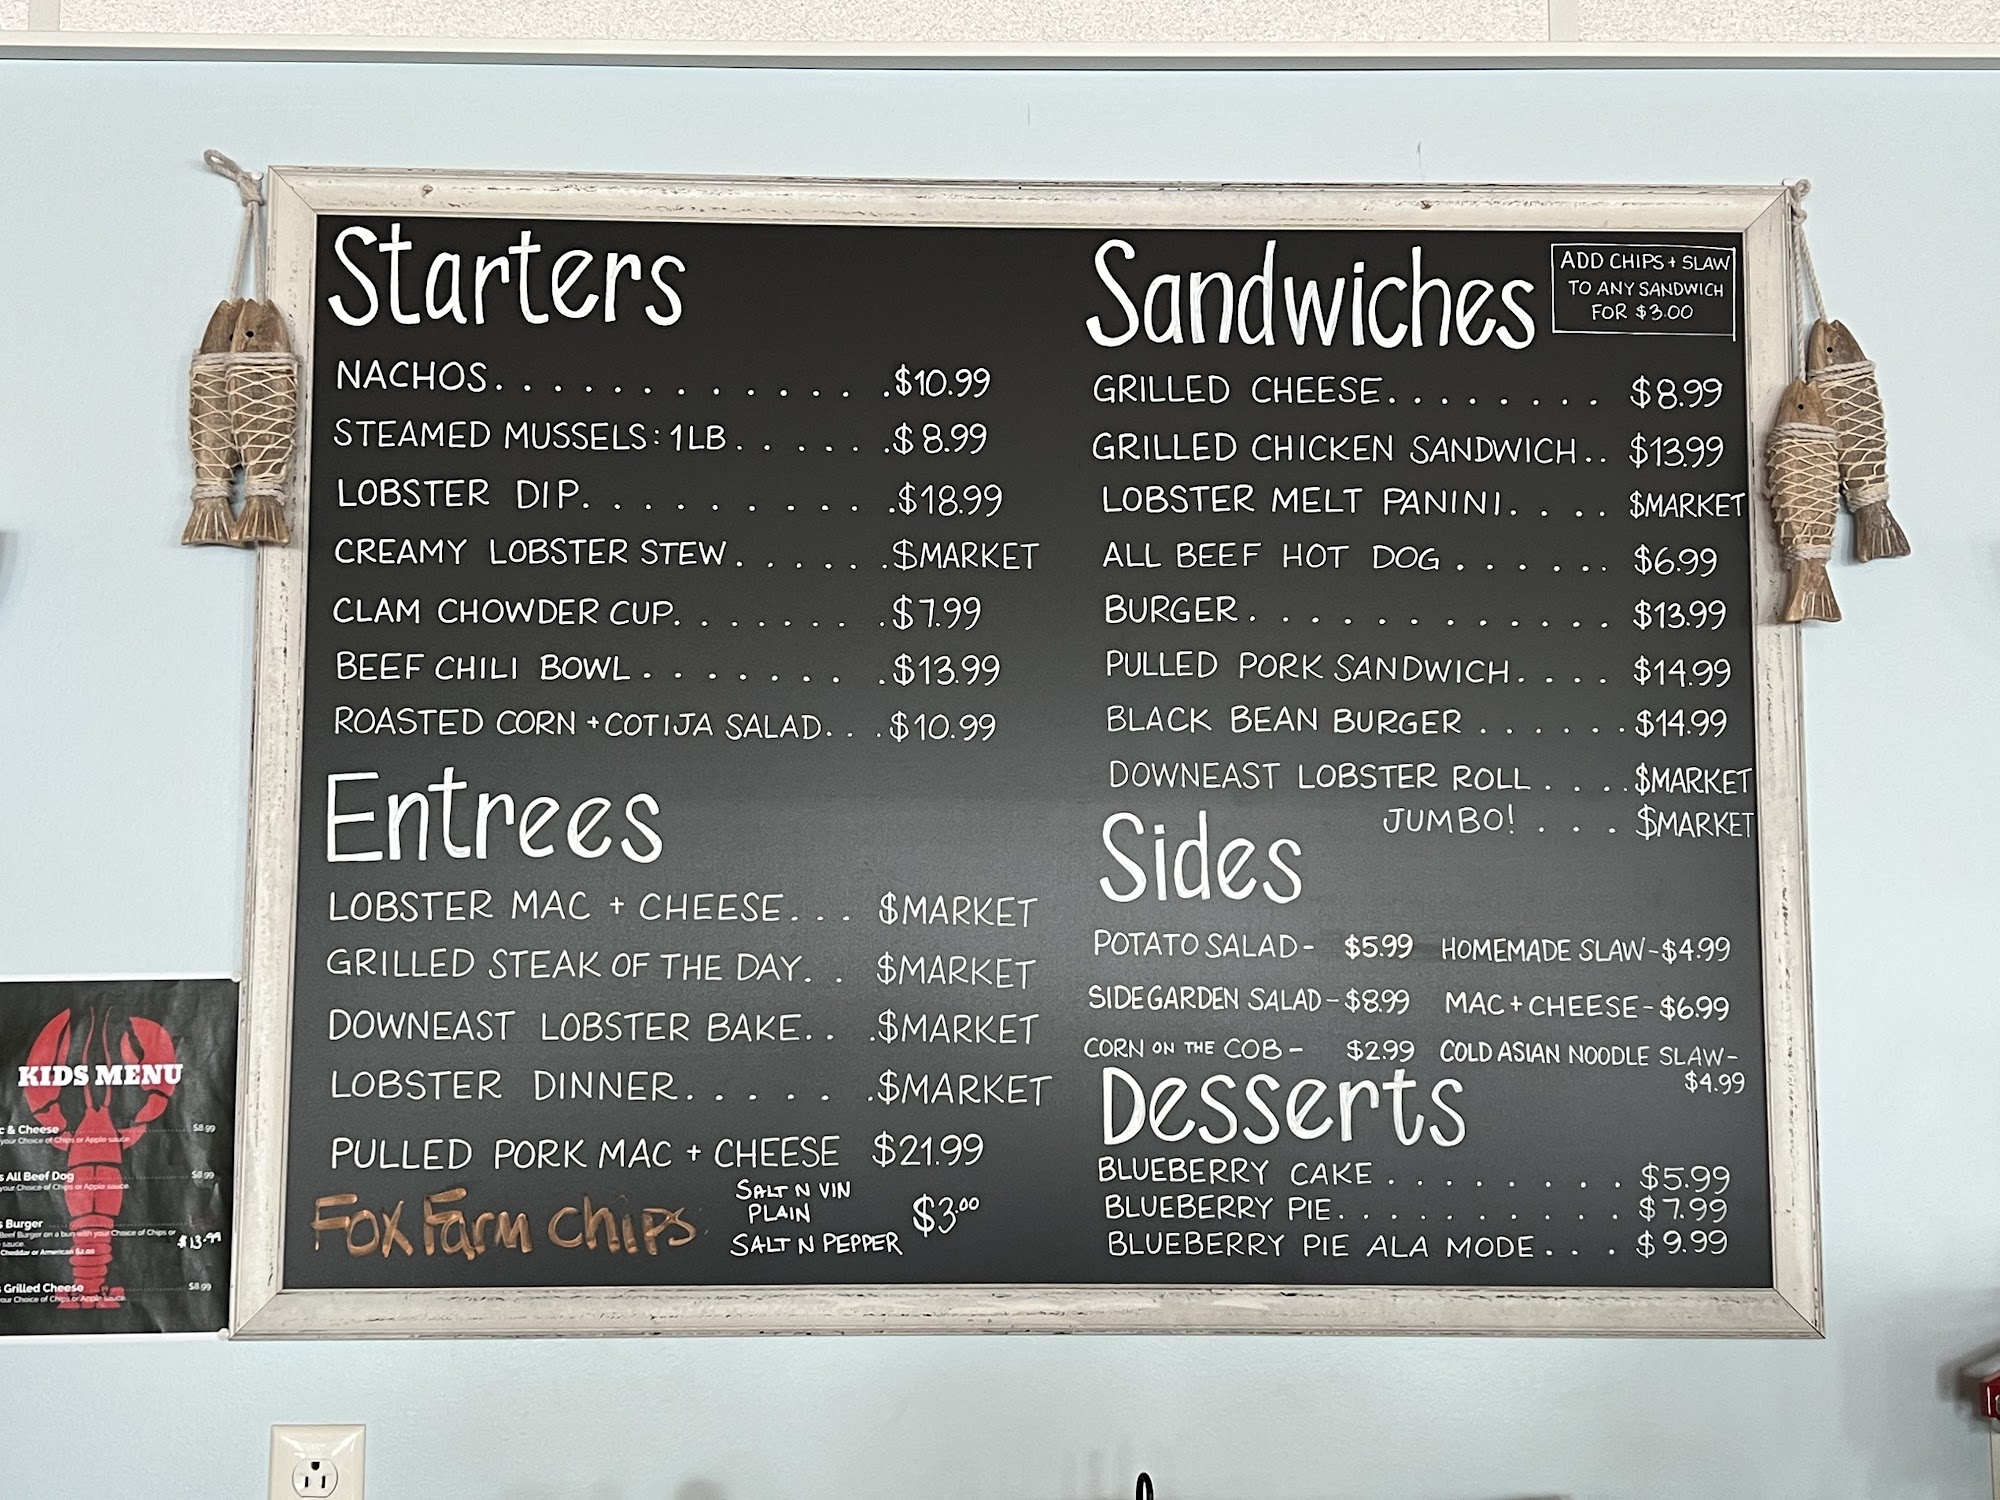 Starters
NACHOS. . . . . . . . . . . . . .$10.99
STEAMED MUSSELS: 1LB. . . . . .$8.99
LOBSTER DIP. . . . . . . . . . .$18.99
CREAMY LOBSTER STEW. . . . . .$MARKET
CLAM CHOWDER CUP. . . . . . . .$7.99
BEEF CHILI BOWL. . . . . . . .$13.99
ROASTED CORN + COTIJA SALAD. . .$10.99
Entrees
LOBSTER MAC + CHEESE. . . $MARKET
GRILLED STEAK OF THE DAY. . $MARKET
DOWNEAST LOBSTER BAKE. . .$MARKET
LOBSTER DINNER. . . . . .$MARKET
PULLED PORK MAC + CHEESE $21.99
Fox Farm Chips
SALT N VIN
PLAIN
SALT N PEPPER
$3.00
Sandwiches
ADD CHIPS + SLAW
TO ANY SANDWICH
FOR $3.00
GRILLED CHEESE. . . . . . . . $8.99
GRILLED CHICKEN SANDWICH. . $13.99
LOBSTER MELT PANINI. . . . $MARKET
ALL BEEF HOT DOG . . . . . . $6.99
BURGER. . . . . . . . . . . . . $13.99
PULLED PORK SANDWICH. . . . $14.99
BLACK BEAN BURGER . . . . . .$14.99
DOWNEAST LOBSTER ROLL . . . .$MARKET
JUMBO! . . . $MARKET
Sides
POTATO SALAD- $5.99 HOMEMADE SLAW-$4.99
SIDE GARDEN SALAD-$8.99 MAC + CHEESE-$6.99
CORN ON THE COB- $2.99 COLD ASIAN NOODLE SLAW-
$4.99
Desserts
BLUEBERRY CAKE . . . . . . . . $5.99
BLUEBERRY PIE. . . . . . . . . . $7.99
BLUEBERRY PIE ALA MODE . . . $9.99
KIDS MENU
& Cheese $8.99
your Choice of Chips or Apple sauce
All Beef Dog $8.99
your Choice of Chips or Apple sauce
Burger
Beef Burger on a bun with your Choice of Chips or $13.99
sauce
Cheddar or American $2.00
Grilled Cheese $8.99
your Choice of Chips or Apple sauce